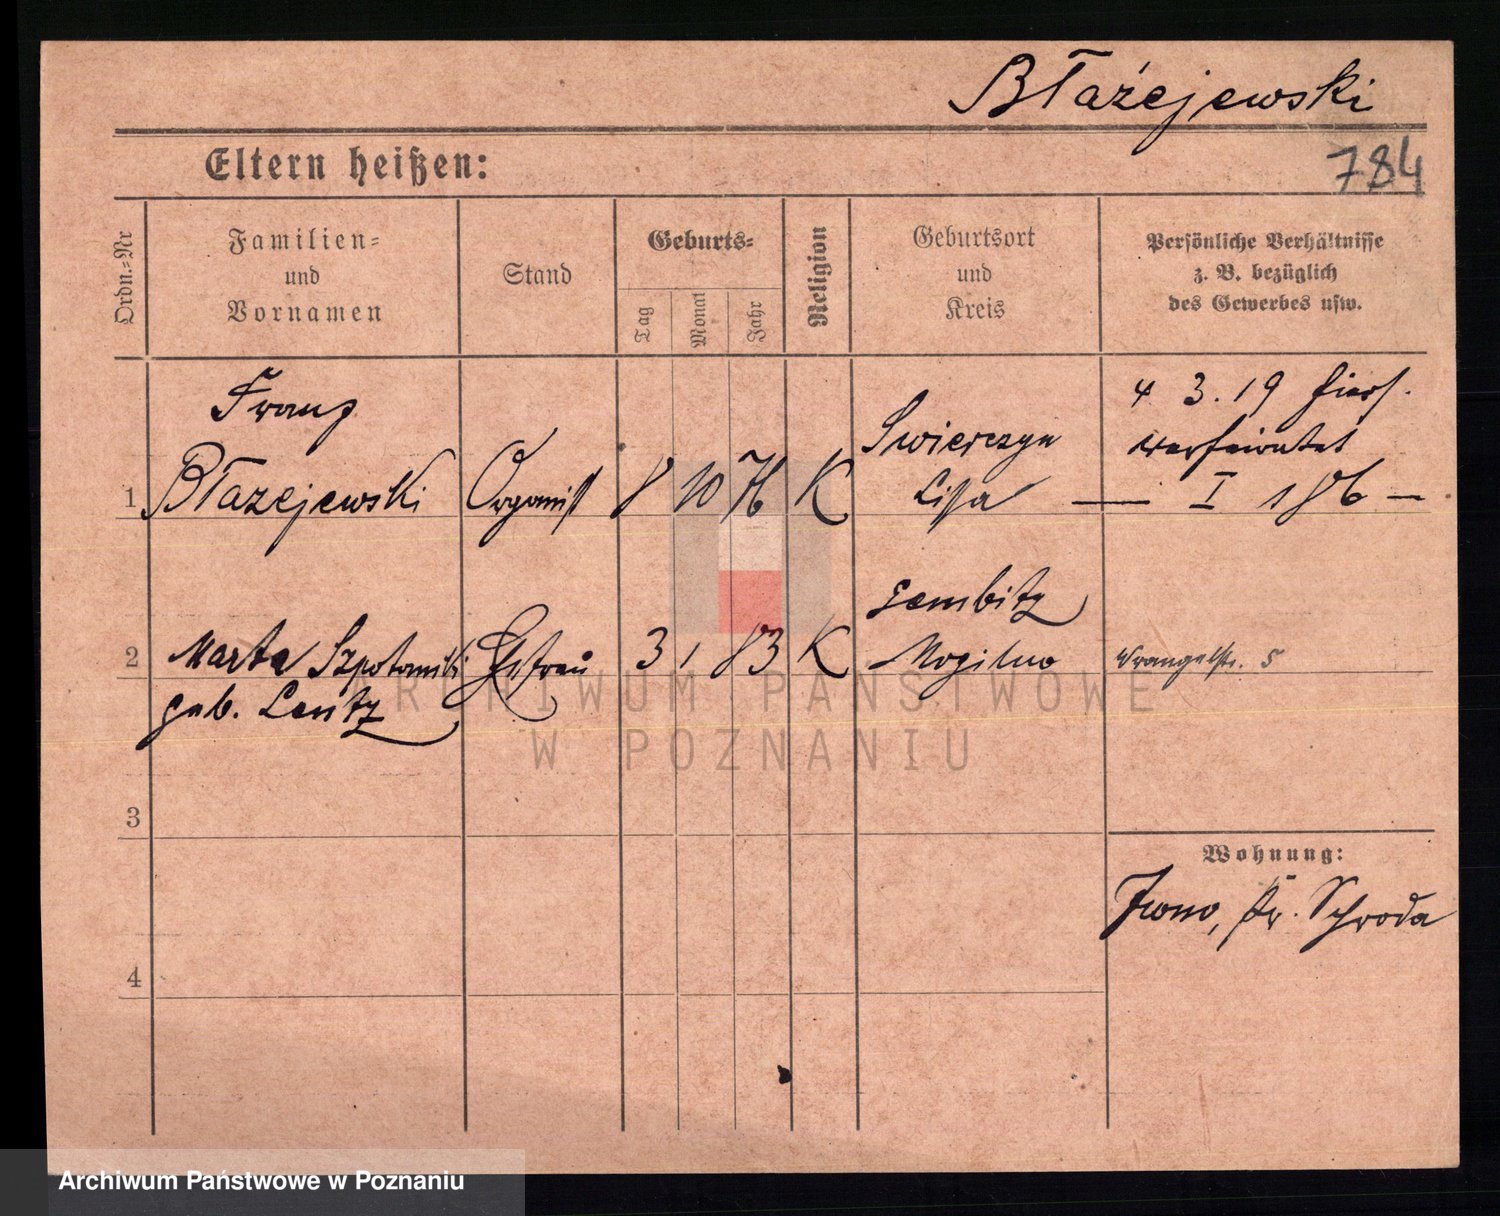 Błażejewski
784
Eltern heißen:
Ordn.=Nr
Familien=
und
Vornamen
Stand
Geburts=
Tag
Monat
Jahr
Religion
Geburtsort
und
Kreis
Persönliche Verhältnisse
z. B. bezüglich
des Gewerbes usw.
Franz
4 3. 19 hier
verheiratet
Swierczyn
1 Błazejewski Organist 8 10 76 K Lissa — I 186 —
Gembitz
2 Marta Szpotanski Ehefrau 3 1 83 K Mogilno Wrangelstr. 5
geb. Lentz
3
Wohnung:
Iwno, Kr. Schroda
4
ARCHIWUM PAŃSTWOWE
W POZNANIU
Archiwum Państwowe w Poznaniu